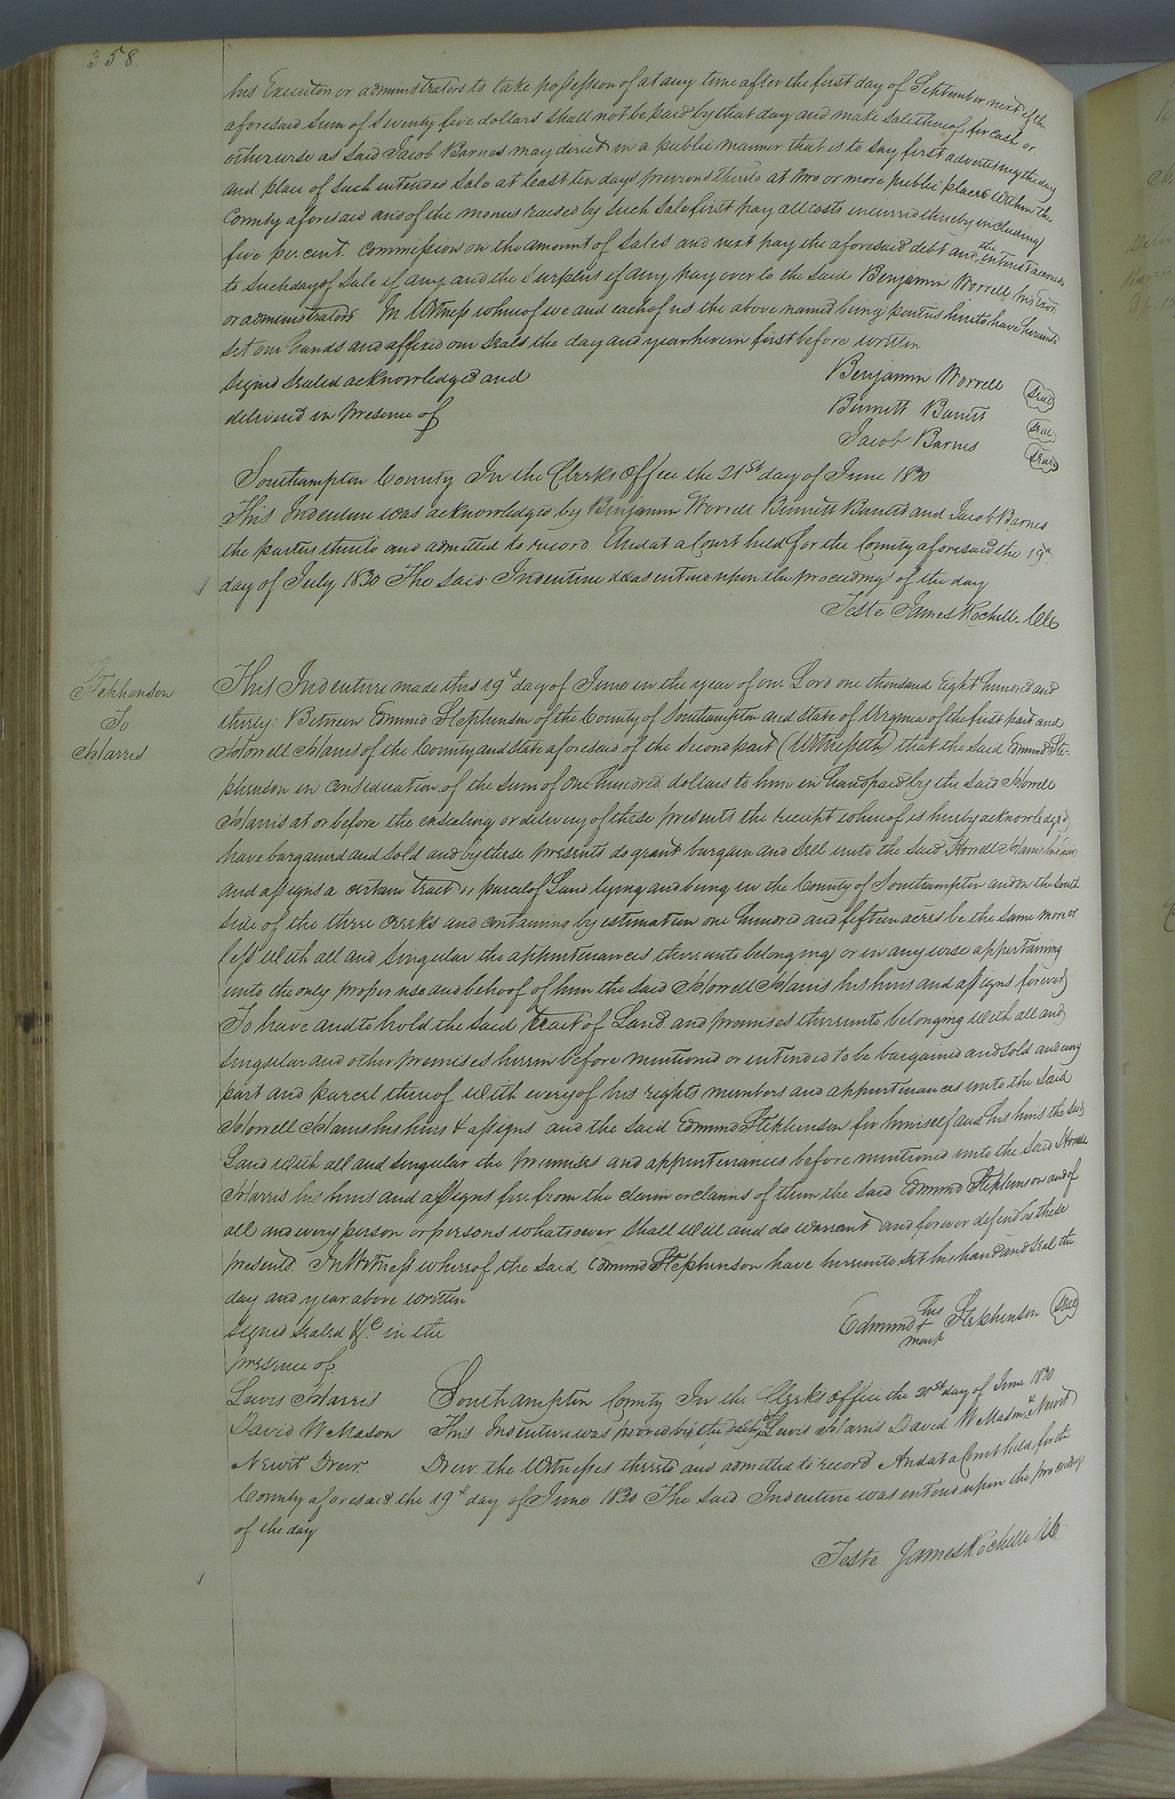 358
his Executors or administrators to take possession of at any time after the first day of September next if the
aforesaid sum of seventy five dollars shall not be paid by that day and make sale thereof for cash or
otherwise as said Jacob Barnes may direct in a public manner that is to say first advertising the day
and place of such intended sale at least ten days previous thereto at two or more public places within the
County aforesaid and of the monies raised by such sale first pay all costs incurred thereby including
five pr. cent. commission on the amount of sales and next pay the aforesaid debt and the interest accrued
to such day of sale if any and the surplus if any pay over to the said Benjamin Worrell his Exors
or administrators In Witness whereof we and each of us the above named being parties hereto have hereunto
set our hands and affixed our seals the day and year herein first before written
Signed sealed acknowledged and Benjamin Worrell Seal
delivered in presence of Bennett Barrett Seal
Jacob Barnes Seal
Southampton County In the Clerks Office the 21st day of June 1830
This Indenture was acknowledged by Benjamin Worrell Bennett Barrett and Jacob Barnes
the parties thereto and admitted to record And at a Court held for the County aforesaid the 19th
day of July 1830 The said Indenture was entered upon the proceedings of the day
Teste James Rochelle Clk
Stephenson
To
Harris
This Indenture made this 19th day of June in the year of our Lord one thousand Eight hundred and
thirty: Between Edmund Stephenson of the County of Southampton and State of Virginia of the first part and
Howell Harris of the County and State aforesaid of the second part (Witnesseth) that the said Edmund Ste-
phenson in consideration of the sum of One hundred dollars to him in hand paid by the said Howell
Harris at or before the ensealing or delivery of these presents the receipt whereof is hereby acknowledged
have bargained and sold and by these presents do grant bargain and sell unto the said Howell Harris his heirs
and assigns a certain tract or parcel of Land lying and being in the County of Southampton and on the South
side of the three creeks and containing by estimation one hundred and fifteen acres be the same more or
less With all and singular the appurtenances thereunto belonging or in any wise appertaining
unto the only proper use and behoof of him the said Howell Harris his heirs and assigns forever
To have and to hold the said tract of Land and premises thereunto belonging With all and
singular and other premises herein before mentioned or intended to be bargained and sold and every
part and parcel thereof With every of his rights members and appurtenances unto the said
Howell Harris his heirs & assigns and the said Edmund Stephenson for himself and his heirs the said
Land With all and singular the premises and appurtenances before mentioned unto the said Howell
Harris his heirs and assigns free from the claim or claims of them the said Edmund Stephenson and of
all and every person or persons whatsoever shall Will and do warrant and forever defend by these
presents. In Witness whereof the said Edmund Stephenson have hereunto set his hand and seal the
day and year above written
signed sealed &c. in the Edmund his + mark Stephenson Seal
presence of
Lewis Harris Southampton County In the Clerks office the 21st day of June 1830
David W Mason This Indenture was proved by the oaths of Lewis Harris David W Mason & Newit
Newit Drew. Drew. the Witnesses thereto and admitted to record And at a Court held for the
County aforesaid the 19th day of June 1830 The said Indenture was entered upon the proceedings
of the day
Teste James Rochelle Clk